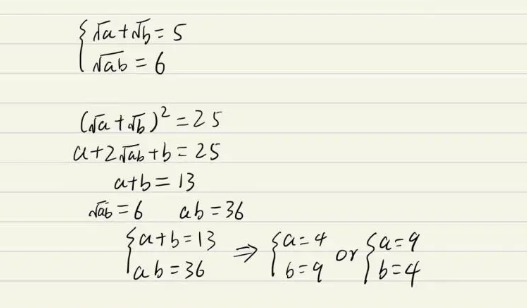 {√a+√b=5
√ab=6
(√a+√b)²=25
a+2√ab+b=25
a+b=13
√ab=6 ab=36
{a+b=13 ⇒ {a=4 or {a=9
ab=36 b=9 b=4